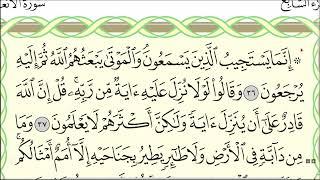 سورة الأنعـ
ـزء السابع
۞ إِنَّمَا يَسْتَجِيبُ الَّذِينَ يَسْمَعُونَ ۘ وَالْمَوْتَىٰ يَبْعَثُهُمُ اللَّهُ ثُمَّ إِلَيْهِ
يُرْجَعُونَ ٣٦ وَقَالُوا لَوْلَا نُزِّلَ عَلَيْهِ ءَايَةٌ مِّن رَّبِّهِ ۚ قُلْ إِنَّ اللَّهَ
قَادِرٌ عَلَىٰ أَن يُنَزِّلَ ءَايَةً وَلَٰكِنَّ أَكْثَرَهُمْ لَا يَعْلَمُونَ ٣٧ وَمَا
مِن دَابَّةٍ فِي الْأَرْضِ وَلَا طَائِرٍ يَطِيرُ بِجَنَاحَيْهِ إِلَّا أُمَمٌ أَمْثَالُكُم ۚ